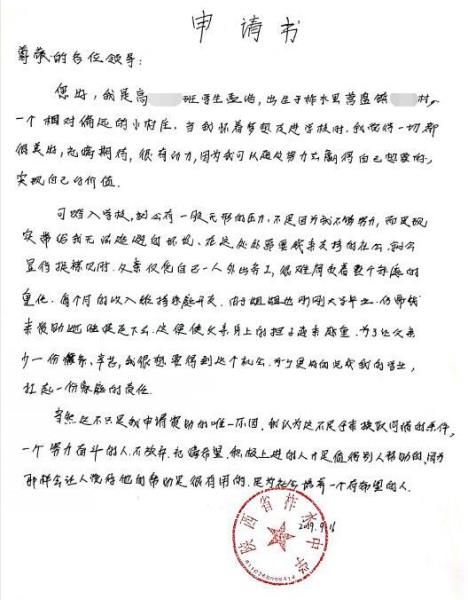 申请书
尊敬的各位领导:
您好,我是高 班学生孟浩,出生于柞水县营盘镇 村,
一个相对偏远的小村庄。当我怀着梦想及进学校时,我觉得一切都
很美好,充满期待,很有动力,因为我可以通过努力去赢得自己想要的,
实现自己的价值。
可踏入学校,就会有一股无形的压力,不是因为我不够努力,而是现
实带给我无法逃避的环境,在这处处都要钱来支撑的社会,
显得捉襟见肘。父亲仅凭自己一人外出务工,很难肩负着整个家庭的
重任。每个月的收入维持家庭开支。由于姐姐也刚刚大学毕业,仍需钱
来援助她继续走下去。这便使父亲身上的担子越来越重。为了让父亲
少一份 、辛苦,我很想要得到这个机会。为了更好的完成我的学业,
扛起一份家庭的责任。
当然这不只是我申请资助的唯一原因。我认为这不是用来换取同情的条件,
一个努力奋斗的人,不放弃,充满希望,积极上进的人才是值得别人帮助的,因为
那样会让人觉得他的帮助是很有用的,是为社会培育一个有希望的人。
陕西省柞水中学
2019.9.16